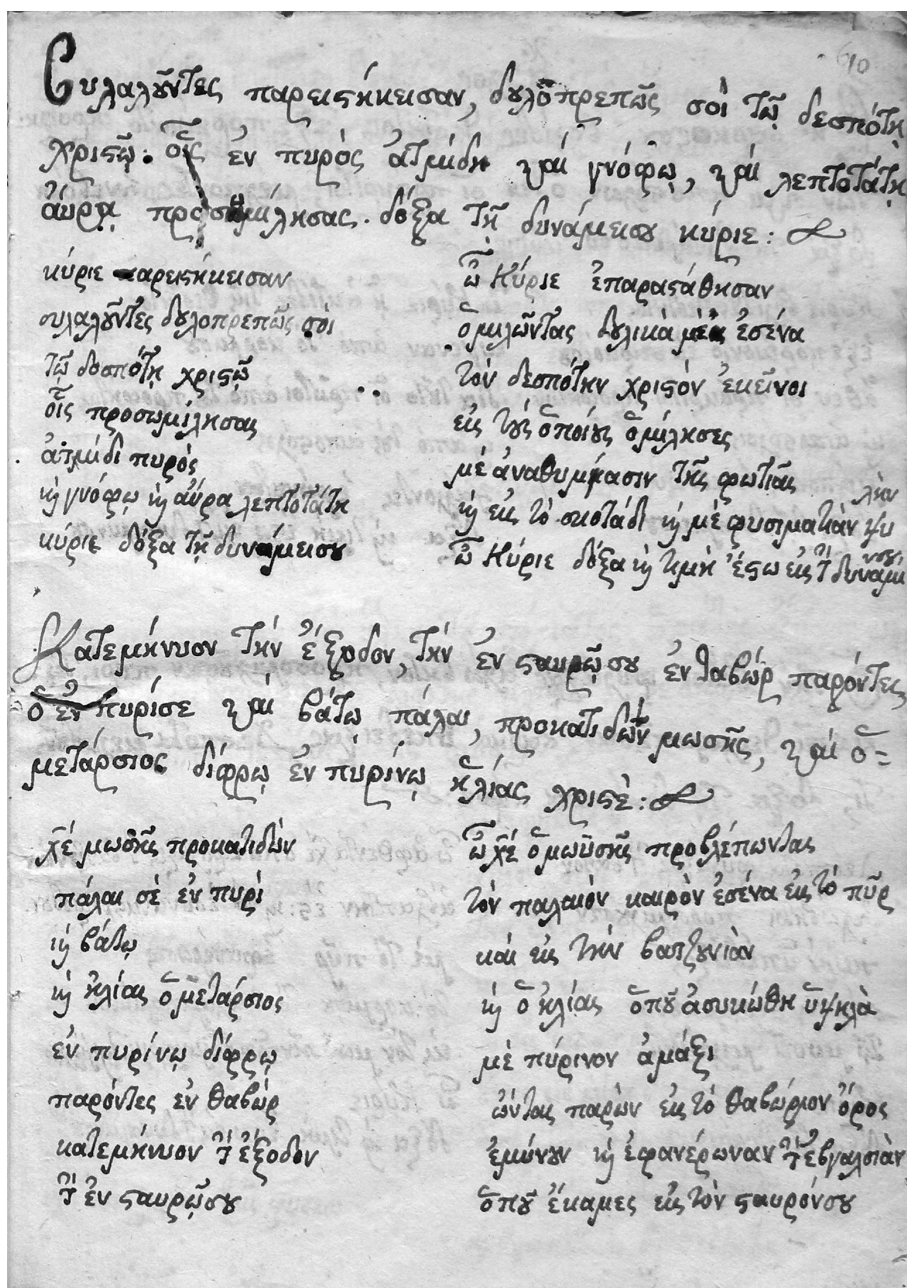 10
Συλαλοῦντες παρειςήκεισαν, δουλοπρεπῶς σοὶ τῷ δεσπότῃ
χριςῷ. οἷς ἐν πυρὸς ἀτμίδι καὶ γνόφῳ, καὶ λεπτοτάτῃ
ἄυρᾳ προσωμίλησας. δόξα τῇ δυνάμεισου κύριε:
κύριε παρειςήκεισαν
συλαλοῦντες δουλοπρεπῶς σοὶ
τῷ δεσπότῃ χριςῷ
οἷς προσωμίλησας
ἀτμίδι πυρὸς
κỳ γνόφῳ κỳ ἄυρα λεπτοτάτη
κύριε δόξα τῇ δυνάμεισου
ὦ Κύριε ἐπαραςάθησαν
ὁμιλῶντας δουλικὰ μὲ ἐσένα
τὸν δεσπότην χριςὸν ἐκεῖνοι
εἰς τοὺς ὁποίους ὁμίλησες
μὲ ἀναθυμίασιν τῆς φωτιᾶς
κỳ εἰς τὸ σκοτάδι κỳ μὲ φυσιματιὰν ψυ
λὴν
ὦ Κύριε δόξα κỳ τιμὴ ἔςω εἰς τ δυναμί
νσου
Κατεμήνυον τὴν ἔξοδον, τὴν ἐν ςαυρῷσου ἐν θαβὼρ παρόντες
ὁ ἐν πυρίσε καὶ βάτῳ πάλαι, προκατιδὼν μωσῆς, καὶ ὁ=
μετάρσιος δίφρῳ ἐν πυρίνῳ ἠλίας χριςέ:
χέ μωσῆς προκατιδὼν
πάλαι σὲ ἐν πυρὶ
κỳ βάτῳ
κỳ ἠλίας ὁ μετάρσιος
ἐν πυρίνῳ δίφρῳ
παρόντες ἐν θαβὼρ
κατεμήνυον τ ἔξοδον
τ ἐν ςαυρῷσου
ὦ χέ ὁ μωϋσῆς προβλέπωντας
τὸν παλαιὸν καιρὸν ἐσένα εἰς τὸ πῦρ
καὶ εἰς τὴν βατζουνιὰν
κỳ ὁ ἠλίας ὁποῦ ἀσυκώθη ὑψηλὰ
μὲ πύρινον ἁμάξι
ὦντας παρὼν εἰς τὸ θαβώριον ὄρος
ἐμύνουν κỳ ἐφανέρωναν τ εβγαλσιὰν
ὁποῦ ἔκαμες εἰς τὸν ςαυρόνσου